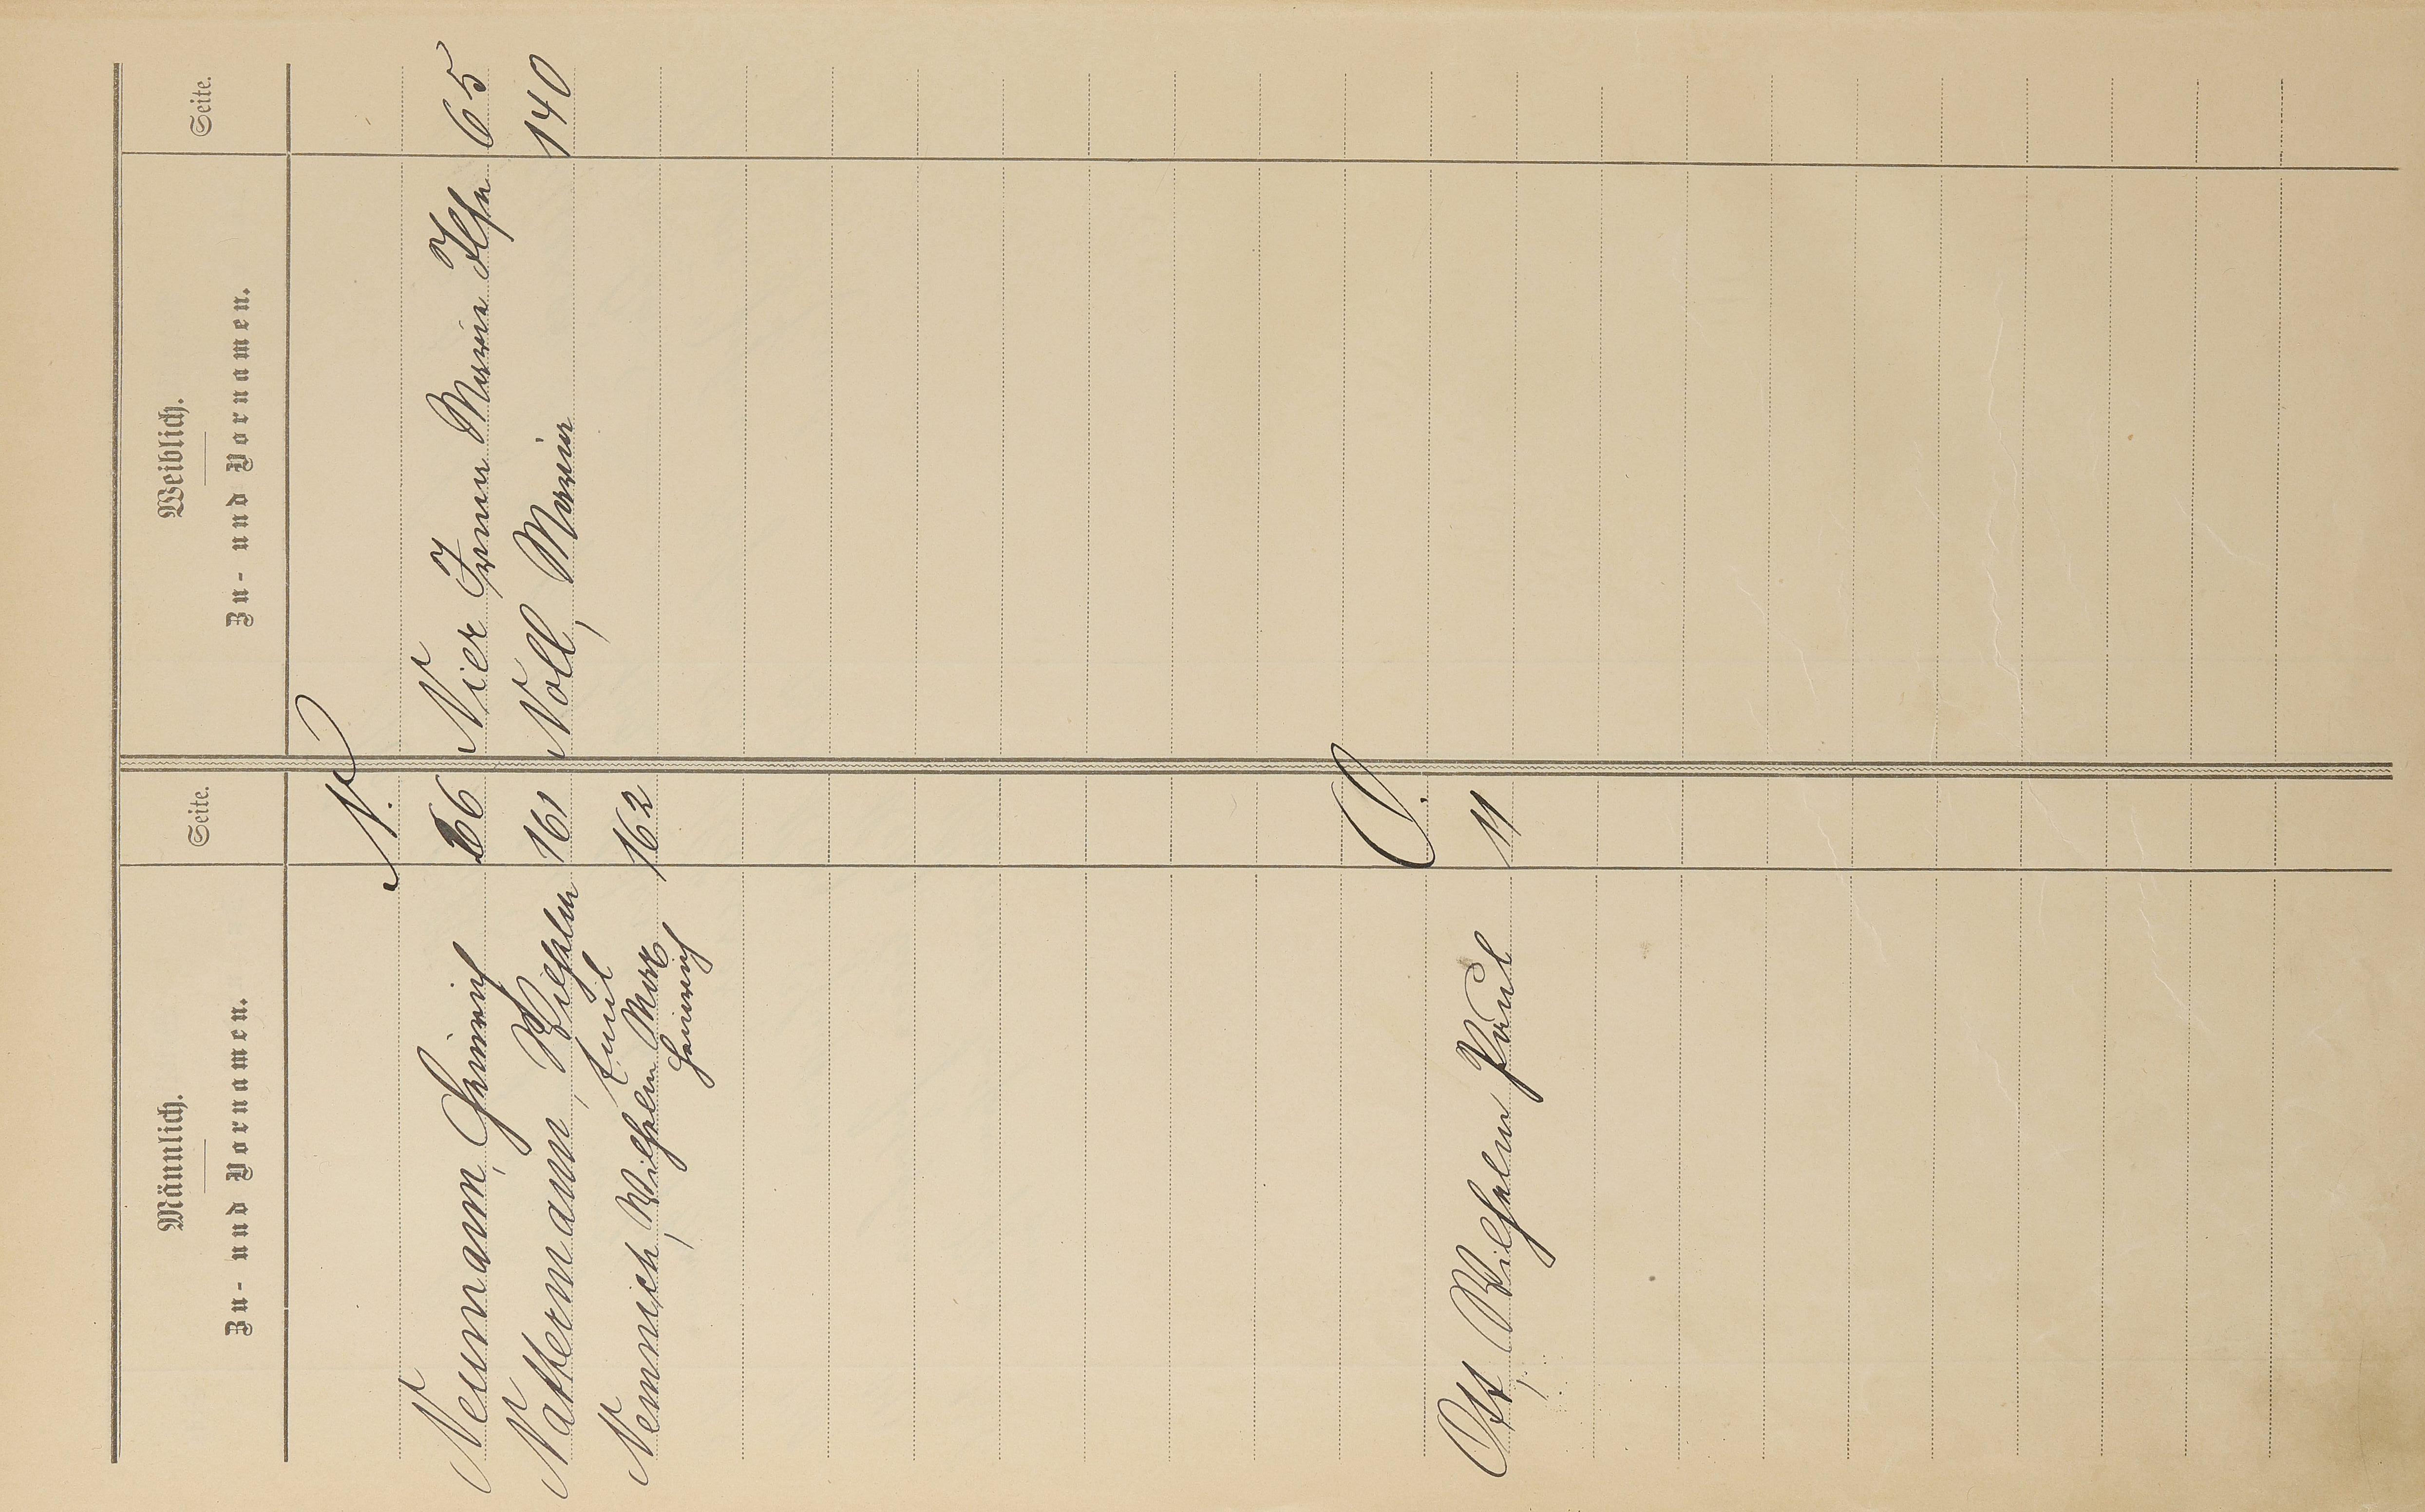 Männlich.
Zu- und Vornamen.
Seite.
Weiblich.
Zu- und Vornamen.
Seite.
N.
Neumann, Heinrich 66
Nier Irma Maria Ilse 65
Nattermann, Wilhelm 161
Emil
Noll, Maria 140
Nemnich, Wilhelm Max 162
Heinrich
O.
Ott, Wilhelm Paul 11